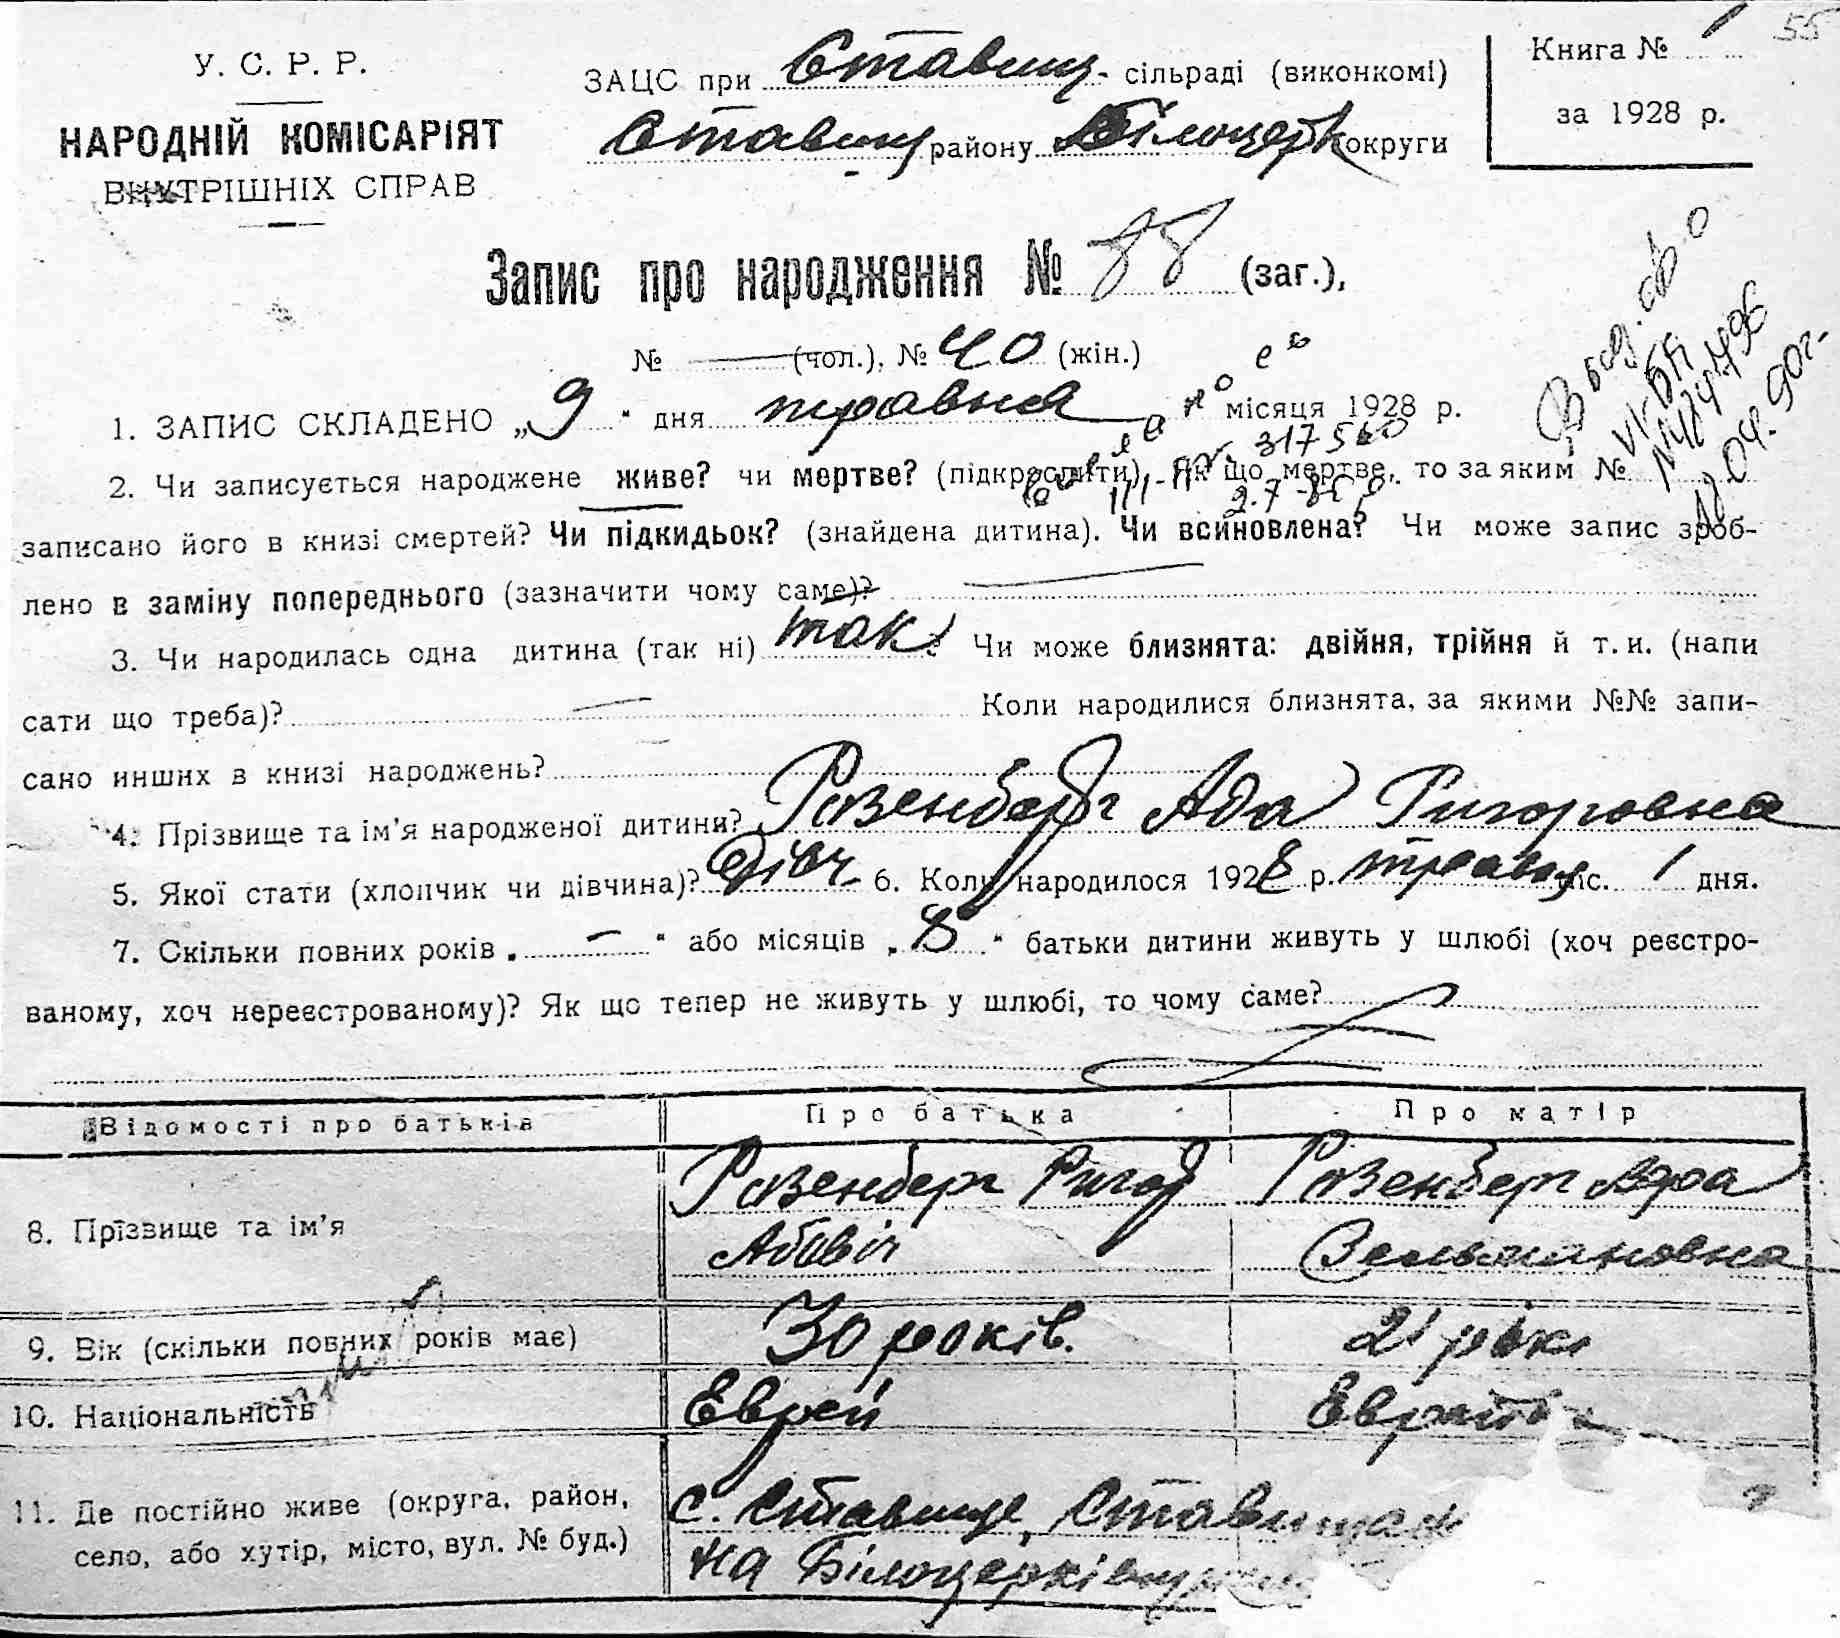 55
У. С. Р. Р.
НАРОДНІЙ КОМІСАРІЯТ
ВНУТРІШНІХ СПРАВ
ЗАЦС при Ставищ. сільраді (виконкомі)
Ставищ району Білоцерк округи
Книга № 1
за 1928 р.
Запис про народження № 88 (заг.),
№ — (чол.), № 40 (жін.)
1. ЗАПИС СКЛАДЕНО „9“ дня травня місяця 1928 р.
317560
2. Чи записується народжене живе? чи мертве? (підкреслити), Як що мертве, то за яким №
записано його в книзі смертей? Чи підкидьок? (знайдена дитина). Чи всиновлена? Чи може запис зроб-
лено в заміну попереднього (зазначити чому саме)? —
3. Чи народилась одна дитина (так ні) так. Чи може близнята: двійня, трійня й т. и. (напи
сати що треба)? — Коли народилися близнята, за якими №№ запи-
сано инших в книзі народжень?
4. Прізвище та ім'я народженої дитини? Розенберг Ада Ригоровна
5. Якої стати (хлопчик чи дівчина)? Дівч. 6. Коли народилося 1928 р. травн міс. 1 дня.
7. Скільки повних років „ — “ або місяців „ 8 “ батьки дитини живуть у шлюбі (хоч реєстро-
ваному, хоч нереєстрованому)? Як що тепер не живуть у шлюбі, то чому саме?
Відомості про батьків Про батька Про матір
8. Прізвище та ім'я Розенберг Ригор Розенберг
Абовіч Зельмановна
9. Вік (скільки повних років має) 30 років. 21 рік
10. Національність Еврей Еврейка
11. Де постійно живе (округа, район, с. Ставище, Ставищ
село, або хутір, місто, вул. № буд.) на Білоцерківщ